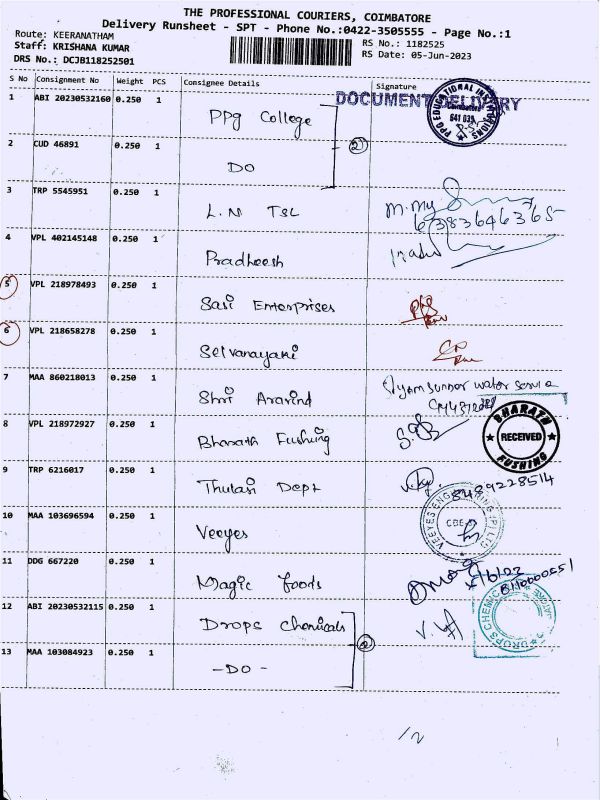 THE PROFESSIONAL COURIERS, COIMBATORE
Delivery Runsheet - SPT - Phone No.:0422-3505555 - Page No.:1
Route: KEERANATHAM
Staff: KRISHANA KUMAR
RS No.: 1182525
DRS No.: DCJB118252501
RS Date: 05-Jun-2023
S No Consignment No Weight PCS Consignee Details Signature
DOCUMENT DELIVERY
1 ABI 20230532160 0.250 1 PPg College
PPG EDUCATIONAL INSTITUTIONS Coimbatore 641 035
2 CUD 46891 0.250 1 DO
2
3 TRP 5545951 0.250 1 L.N TSL
6383646365
4 VPL 402145148 0.250 1 Pradheesh
5 VPL 218978493 0.250 1 Sasi Enterprises
6 VPL 218658278 0.250 1 Selvanayaki
7 MAA 860218013 0.250 1 Shri Aravind
water service
8 VPL 218972927 0.250 1 Bharath Fushing
BHARATH RECEIVED FUSHING
9 TRP 6216017 0.250 1 Thulasi Dept
8489228514
10 MAA 103696594 0.250 1 Veeyes
VEEYES ENGINEERING (P) LTD CBE
11 DDG 667220 0.250 1 Magic foods
12 ABI 20230532115 0.250 1 Drops Chemicals
DROPS CHEMIC
2
13 MAA 103084923 0.250 1 -DO-
/2